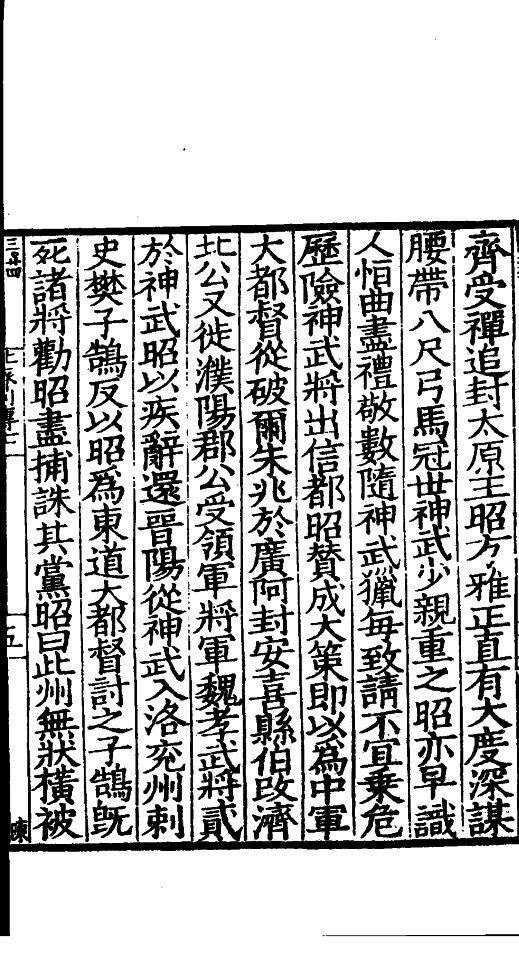 齊受禪追封太原王昭方雅正直有大度深謀
腰帶八尺弓馬冠世神武少親重之昭亦早識
人恒曲盡禮敬數隨神武獵每致請不宜乗危
歷險神武將出信都昭賛成大策即以為中軍
大都督從破爾朱兆於廣阿封安喜縣伯改濟
北公又徙濮陽郡公受領軍將軍魏孝武將貳
於神武昭以疾辭還晉陽從神武入洛兖州刺
史樊子鵠反以昭爲東道大都督討之子鵠既
死諸將勸昭盡捕誅其黨昭曰此州無狀橫被
五